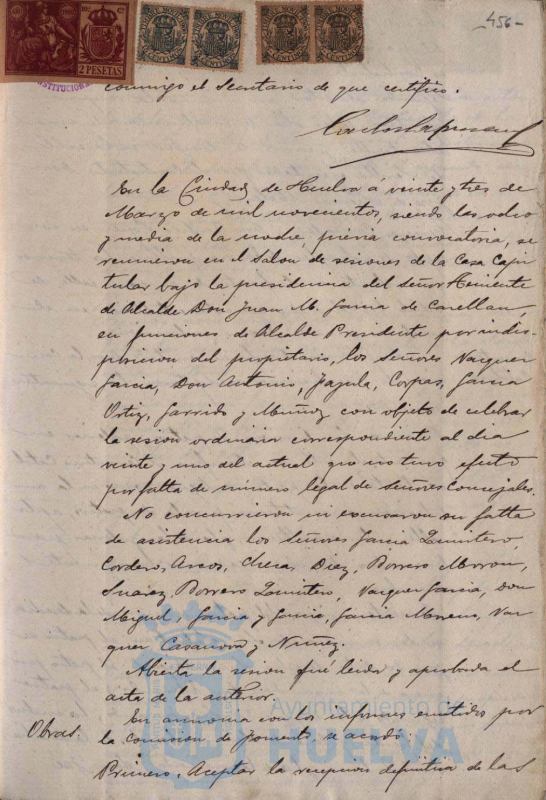 456-
2 PESETAS
conmigo el Secretario de que certifico.
En la Ciudad de Huelva á veinte y tres de
Marzo de mil novecientos, siendo las ocho
y media de la noche, previa convocatoria, se
reunieron en el Salon de sesiones de la Casa Capi
tular bajo la presidencia del Señor Teniente
de Alcalde Don Juan M. Garcia de
en funciones de Alcalde Presidente por indis-
posicion del propietario, los Señores Vazquez
Garcia, Don Antonio, Corpas, Garcia
Ortiz, Garrido y Muñoz con objeto de celebrar
la sesion ordinaria correspondiente al dia
veinte y uno del actual que no tuvo efecto
por falta de número legal de Señores Concejales.
No concurrieron ni excusaron su falta
de asistencia los Señores Garcia Quintero,
Cordero, Arcos, Checa, Diaz, Borrero Morron,
Suarez, Borrero Quintero, Vazquez Garcia, Don
Miguel, Garcia y Garcia, Garcia Moreno, Vaz
quez Casanova y Nuñez.
Abierta la sesion fué leida y aprobada el
acta de la anterior.
En armonia con los informes emitidos por
Obras. la comision de fomento, se acordó:
Primero, Aceptar la recepcion definitiva de las
Ayuntamiento de
HUELVA